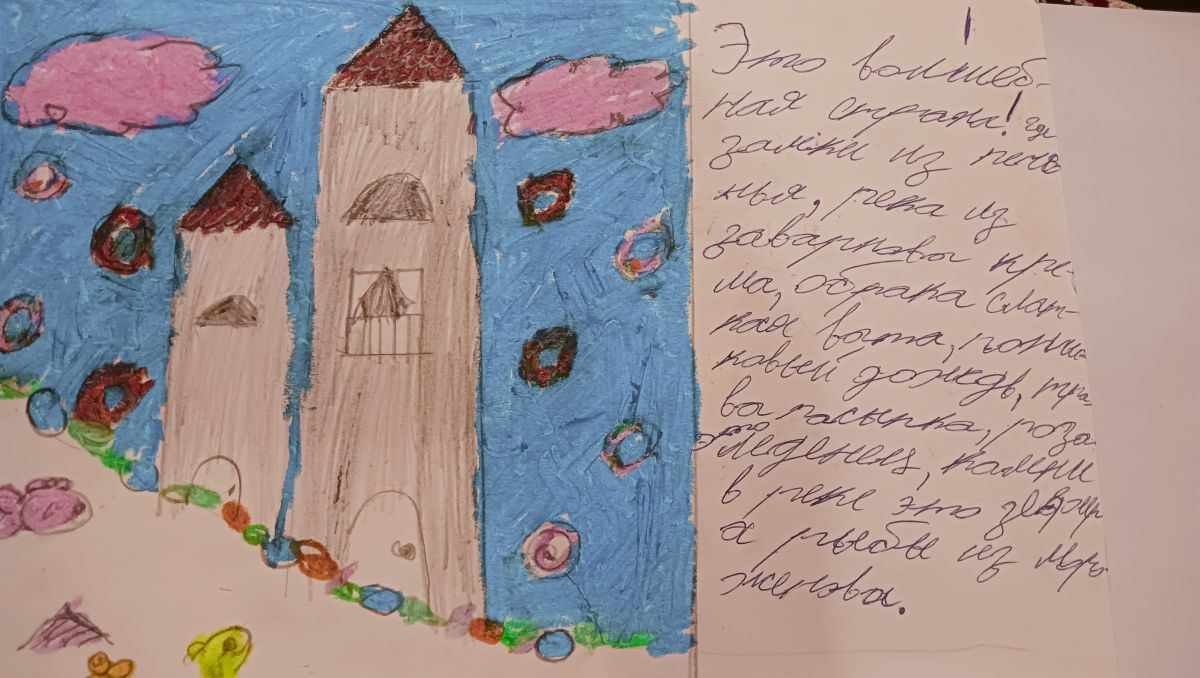 Это волшеб-
ная страна! где
замки из пече
нья, река из
заварнова кре-
ма, облака слат-
кая вата, пончи
ковый дождь, тра-
ва пасыпка, роза
это леденец, камни
в реке это
а рыбы из моро
женова.